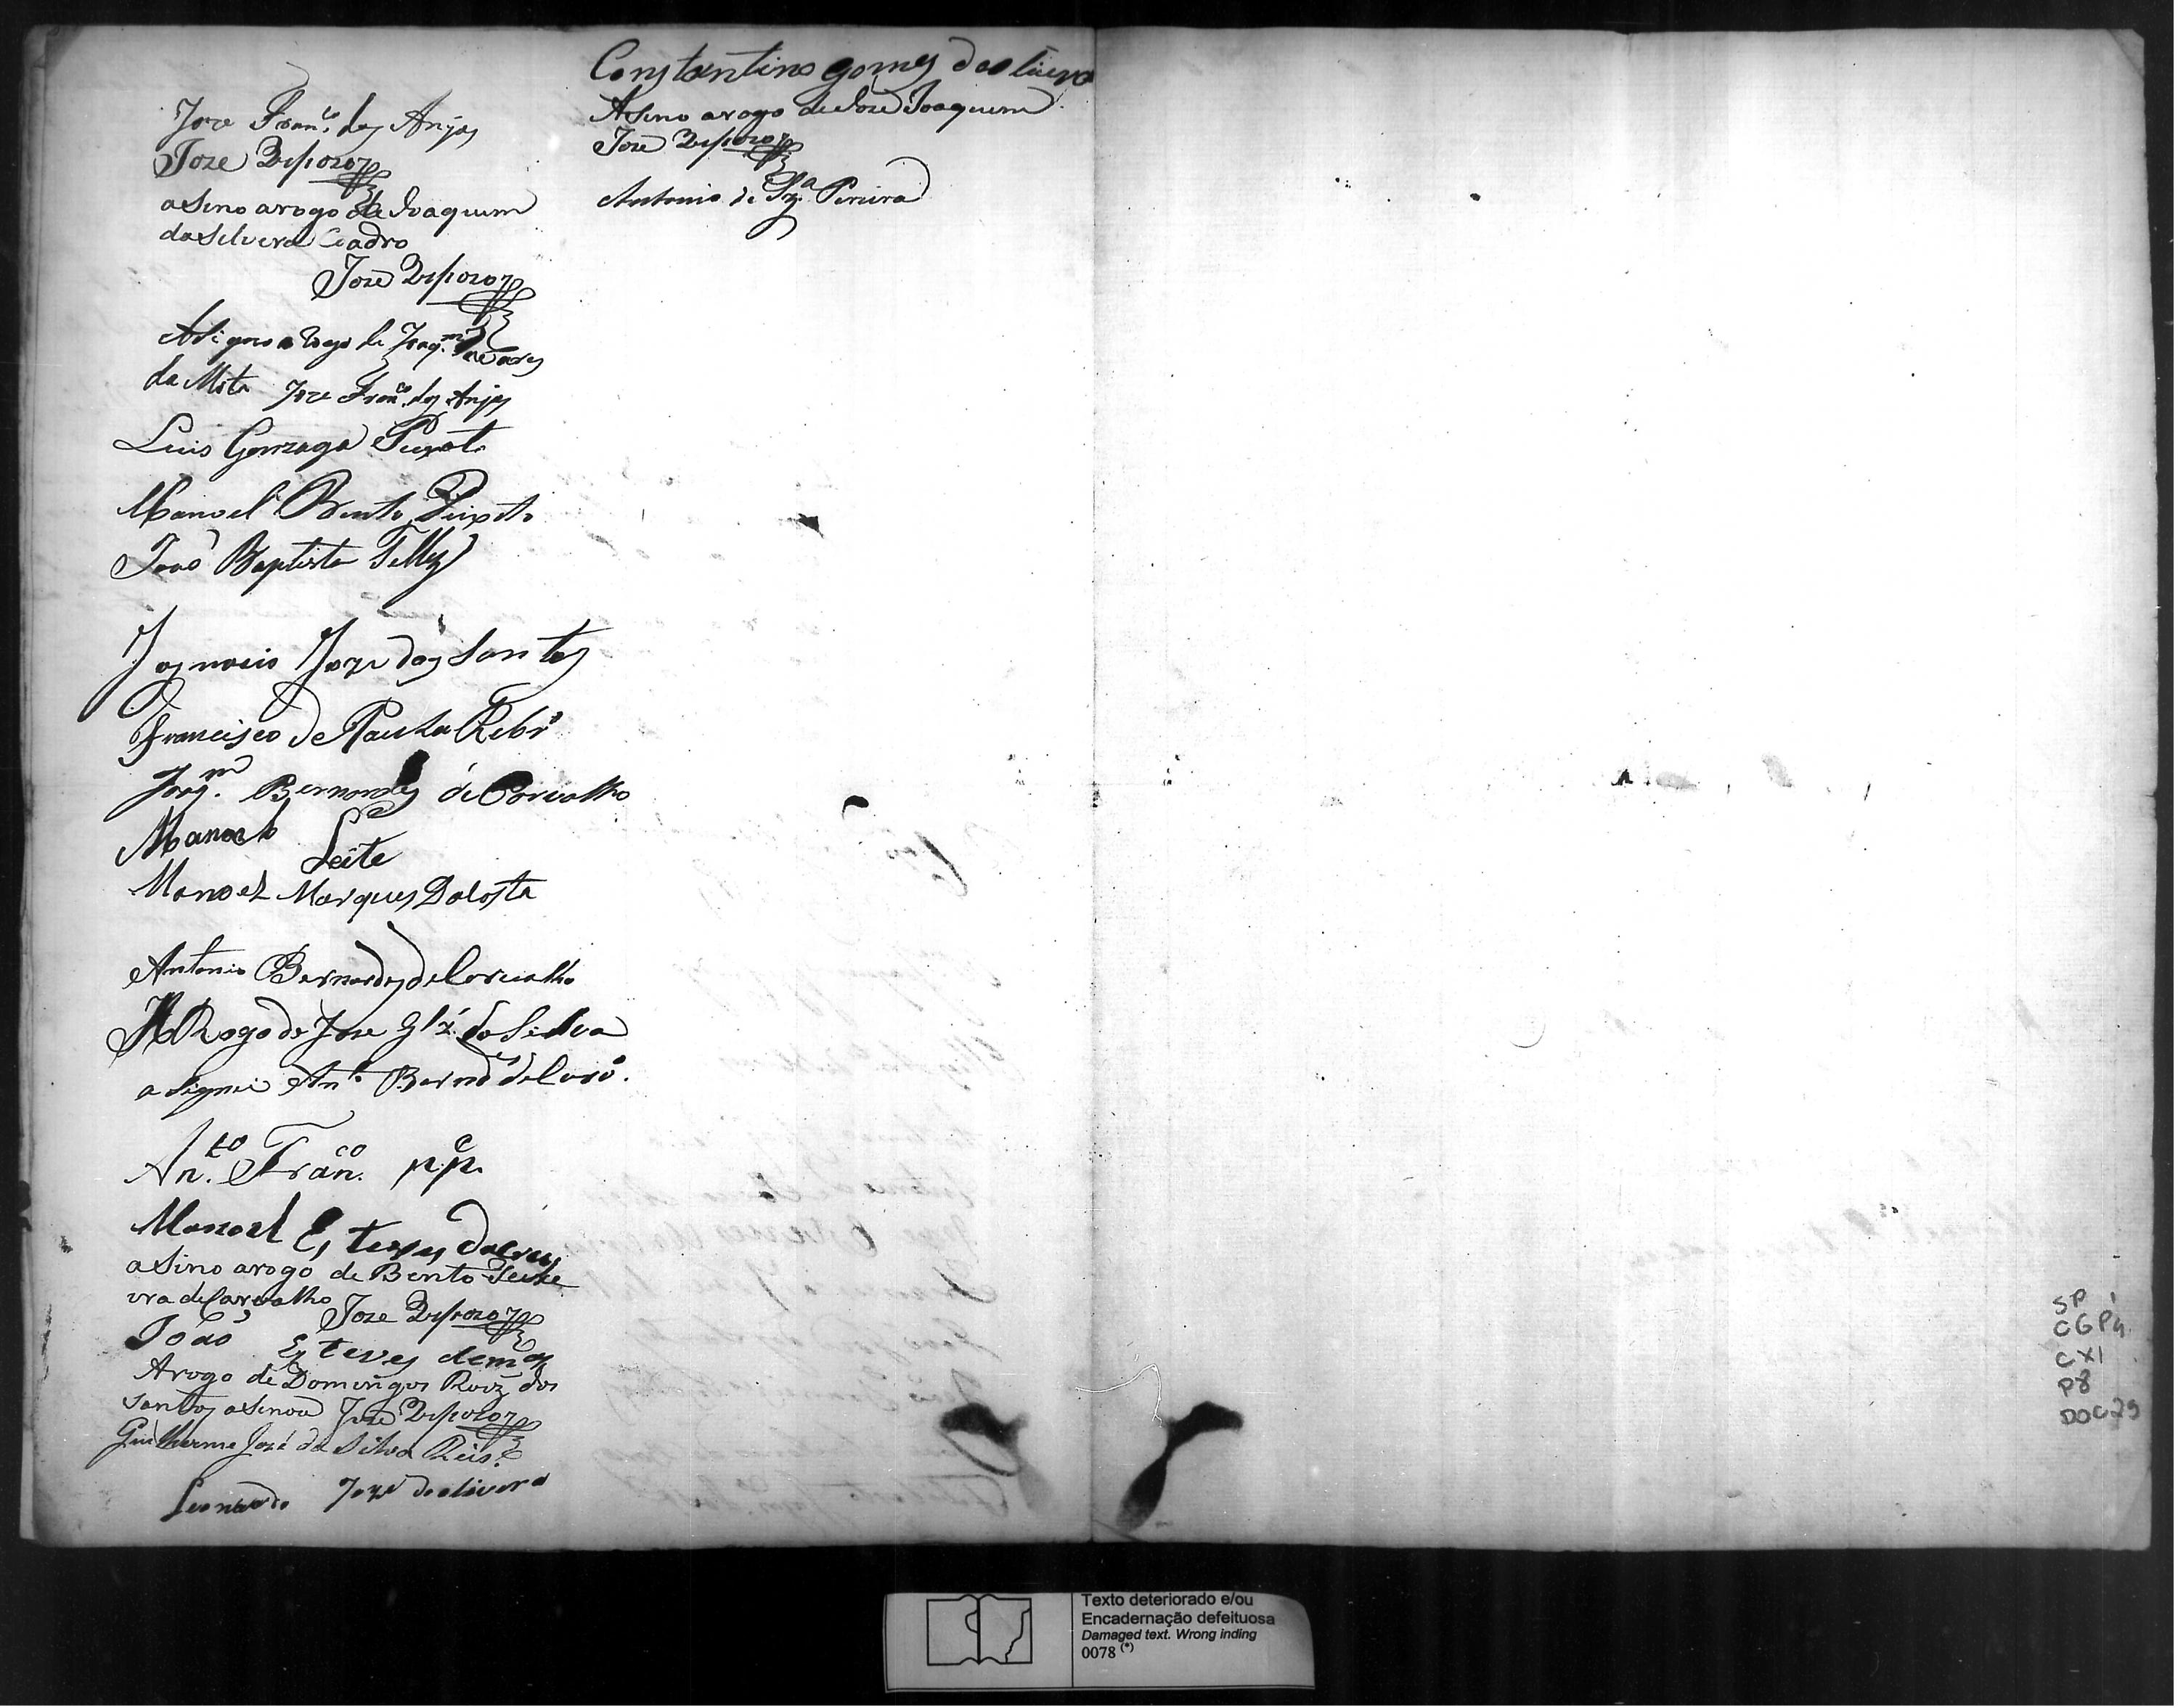 Joze Fran.co dos Anjos
Joze
asino arogo de Joaquim
da Silvera
Joze
Asigno a Rogo de Joaq.m
da Mota Joze Fran.co dos Anjos
Luis Gonzaga Peixoto
Manoel Bento Peixoto
João Baptista Telles
Jognacio Joze dos Santos
Francisco de Paula Rib.ro
Joaq.m Bernardes de Carvalho
Manoel Leite
Manoel Marques Dacosta
Antonio Bernardes de Carvalho
A Rogo de Joze Glz da Silva
a signei Ant.o Bern.des de Carv.o
An.to Fran.co
Manoel Esteves dacrus
asino arogo de Bento Teixe
ira de Carvalho Joze
João Esteves
Arogo de Domingos Roiz dos
santos asinou Joze
Guilherme José da Silva Reis.
Leonardo Joze deolivera
Constantino gomes deolivera
Asino arogo de Joze Joaquim
Joze
Antonio de Sz.a Pereira
SP 1
CGP4
CX1
P8
DOC29
Texto deteriorado e/ou
Encadernação defeituosa
Damaged text. Wrong inding
0078 (*)